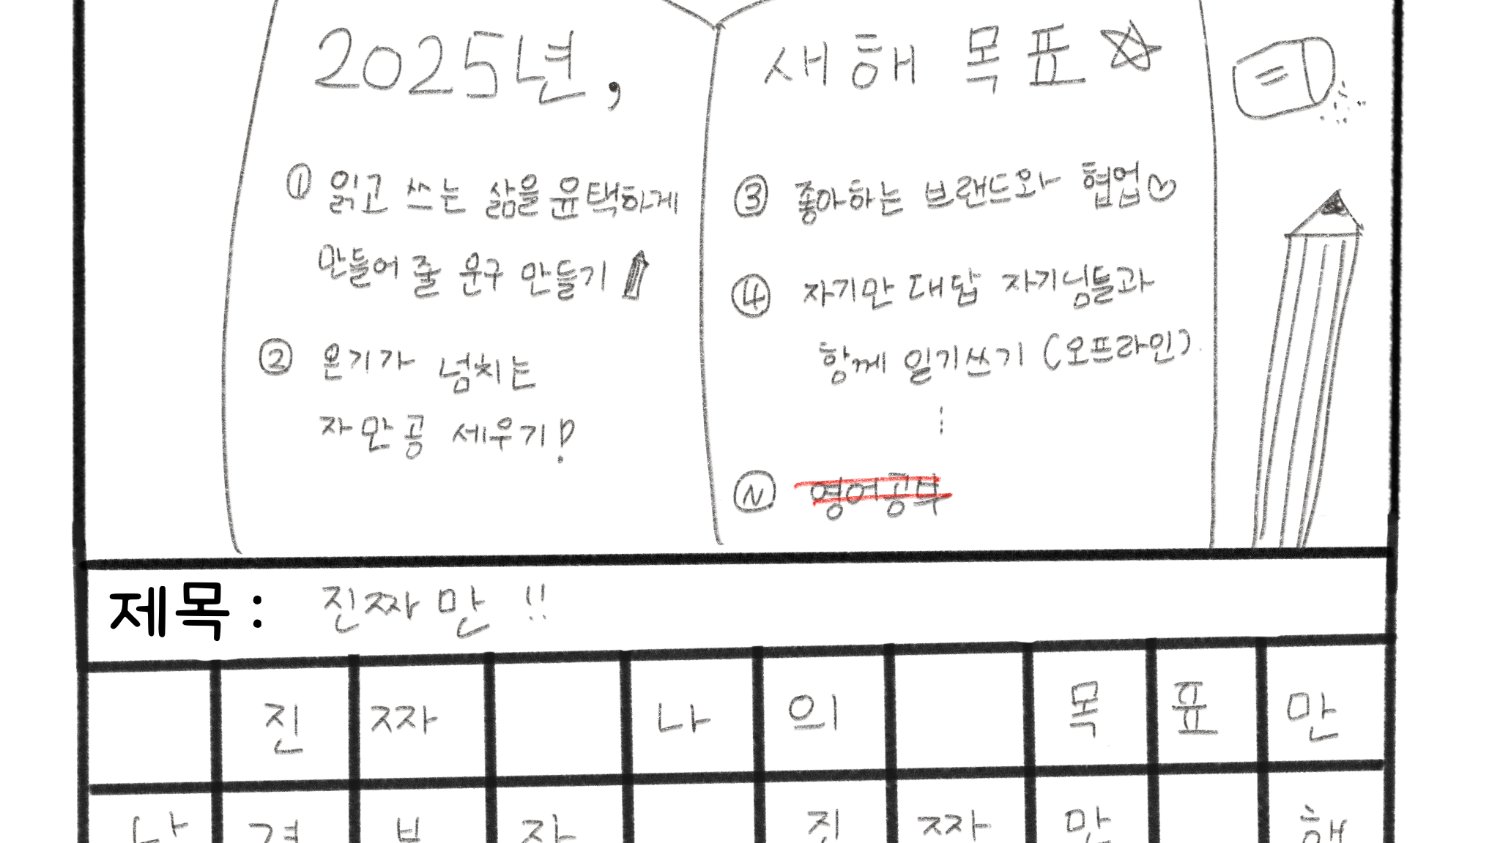 2025년,
① 읽고 쓰는 삶을 윤택하게
만들어 줄 문구 만들기
② 온기가 넘치는
자만공 세우기!
새해 목표
③ 좋아하는 브랜드와 협업♡
④ 자기만 대답 자기님들과
함께 일기쓰기 (오프라인)
⋮
Ⓝ 영어공부
제목 : 진짜만 !!
진짜 나의 목표만
진짜만